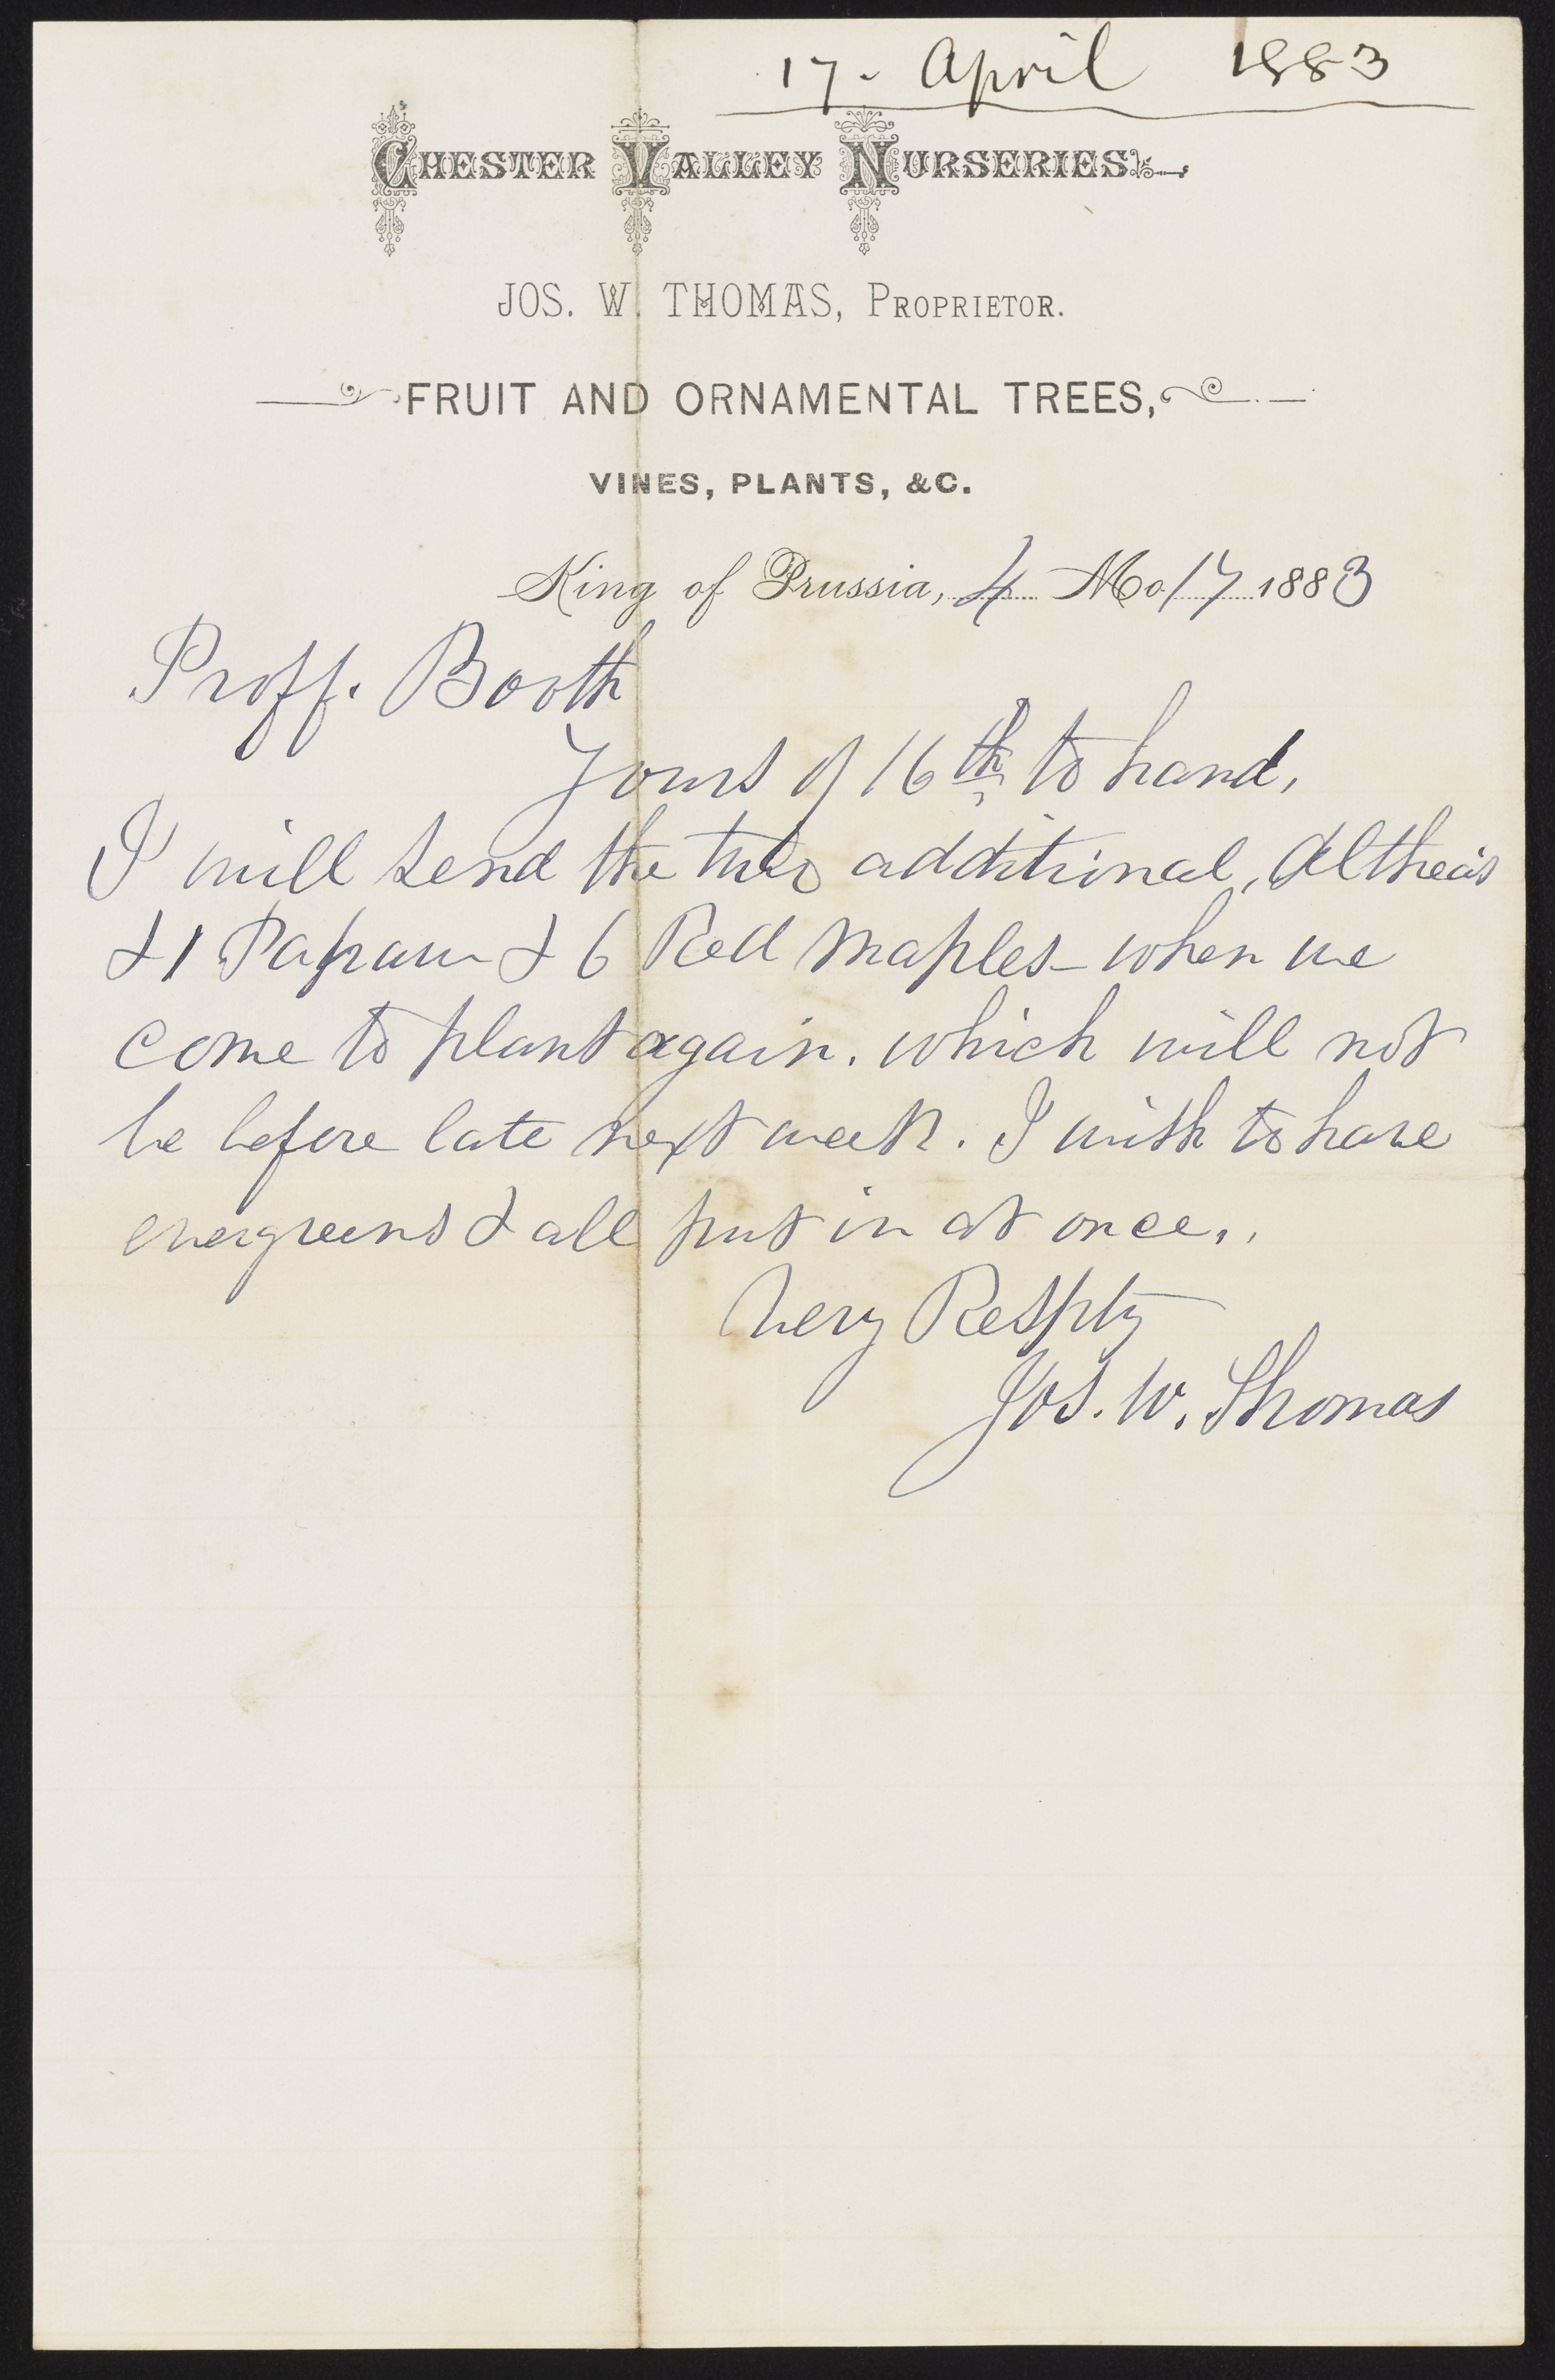 17. April 1883
CHESTER VALLEY NURSERIES.
JOS. W. THOMAS, PROPRIETOR.
FRUIT AND ORNAMENTAL TREES,
VINES, PLANTS, &C.
King of Prussia, 4 Mo 17 1883
Proff. Booth
Yours of 16th to hand,
I will send the two additional, Altheas
& 1 Papaw & 6 Red Maples - when we
come to plant again. which will not
be before late next week. I wish to have
evergreens & all put in at once,.
Very Respty
Jos. W. Thomas